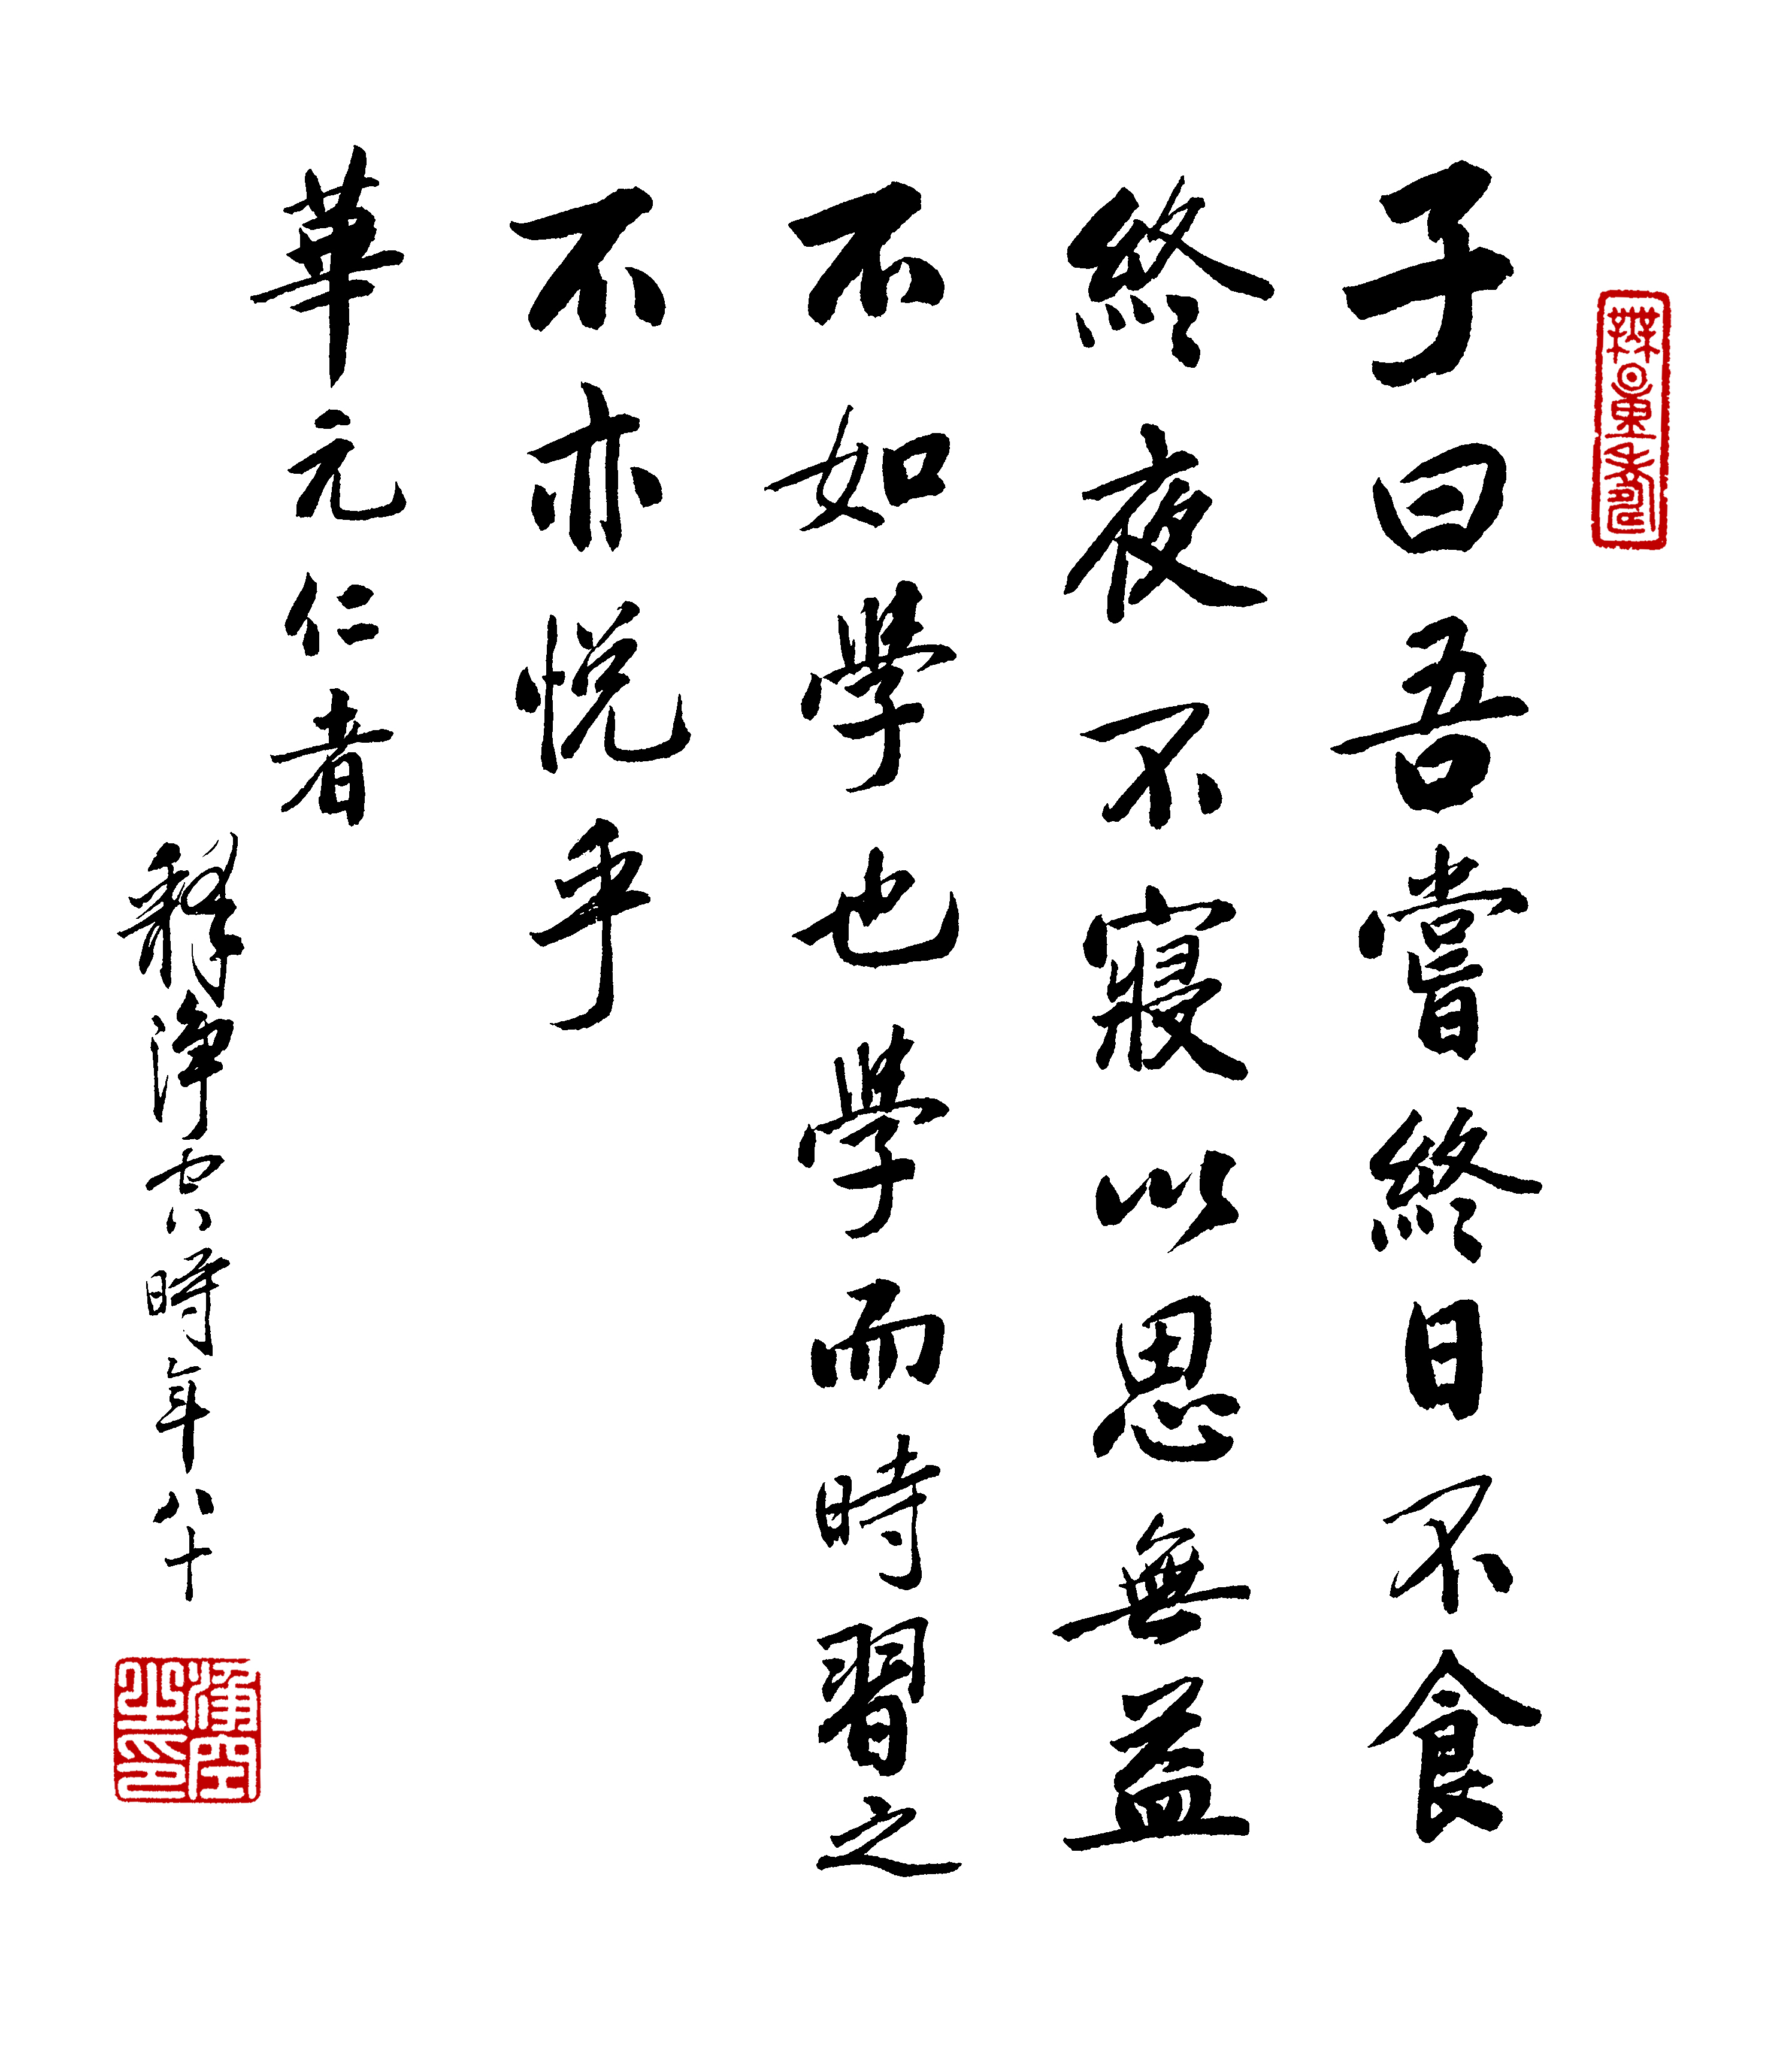 無量壽
子曰吾嘗終日不食
終夜不寢以思無益
不如學也學而時習之
不亦悅乎
華元仁者
釋淨空時年八十
淨空之印